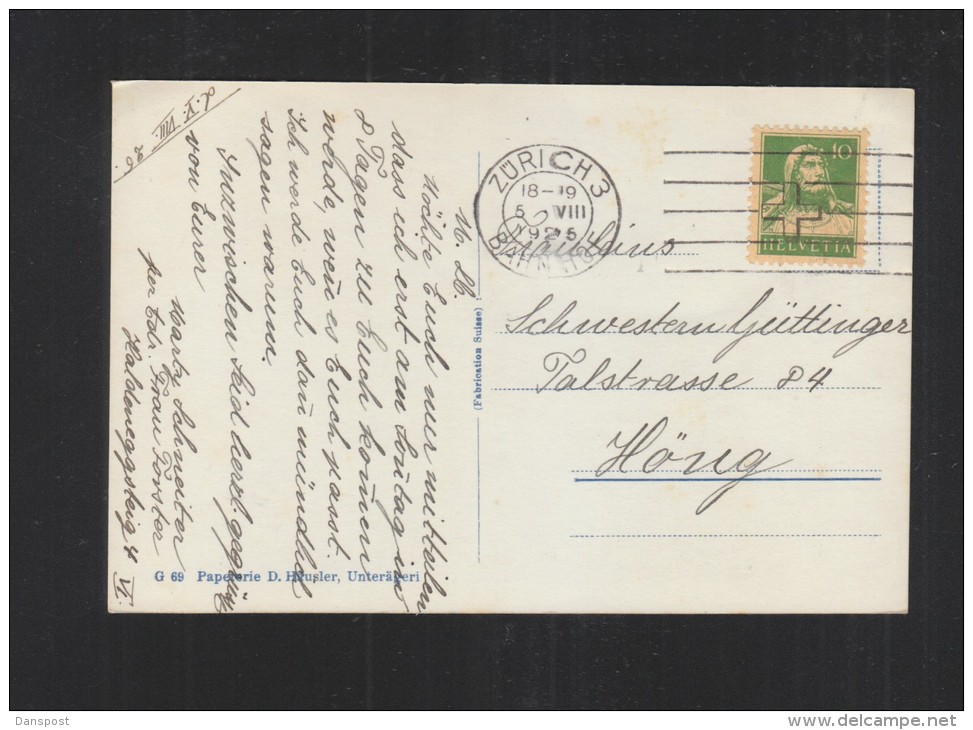 d. V. VIII. 25.
M. Lb.
Möchte Euch nur mitteilen
dass ich erst am Sontag in
8 Tagen zu Euch komen
werde, wen es Euch passt.
Ich werde Euch dan mündlich
sagen warum.
Inzwischen seid herzl. gegrüsst
von Eurer
Marty Schneiter
per Adr. Frau Forster
Haldeneggsteig 4
VI.
G 69 Papeterie D. Häusler, Unterägeri
(Fabrication Suisse)
ZÜRICH 3
18-19
5 VIII
1925
BAHNHOF
10
HELVETIA
Fräuleins
Schwestern Güttinger
Talstrasse 84
Höng
Danspost
www.delcampe.net